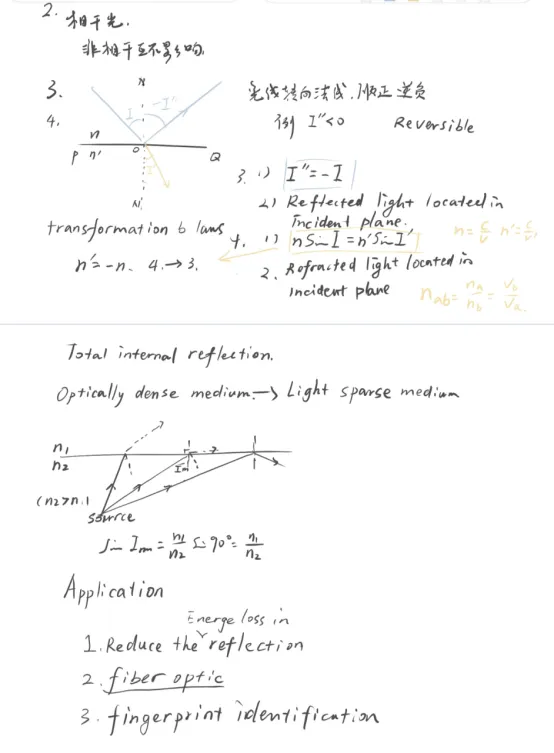 2. 相干光.
非相干互不影响.
3.
4.
N
I -I''
n
P n' O Q
N'
光线转向法线, 顺正逆负
例 I''<0 Reversible
3. 1) I''=-I
2) Reflected light located in
incident plane.
transformation 6 laws
n'=-n. 4.→3.
4. 1) nSinI=n'SinI' n=c/v n'=c/v'
2. Refracted light located in
incident plane
nab=na/nb=Vb/Va.
Total internal reflection.
Optically dense medium.→ Light sparse medium
n1
n2
Im
(n2>n1)
source
Sin Im = n1/n2 Sin 90°= n1/n2
Application
Energe loss in
1. Reduce the reflection
2. fiber optic
3. fingerprint identification